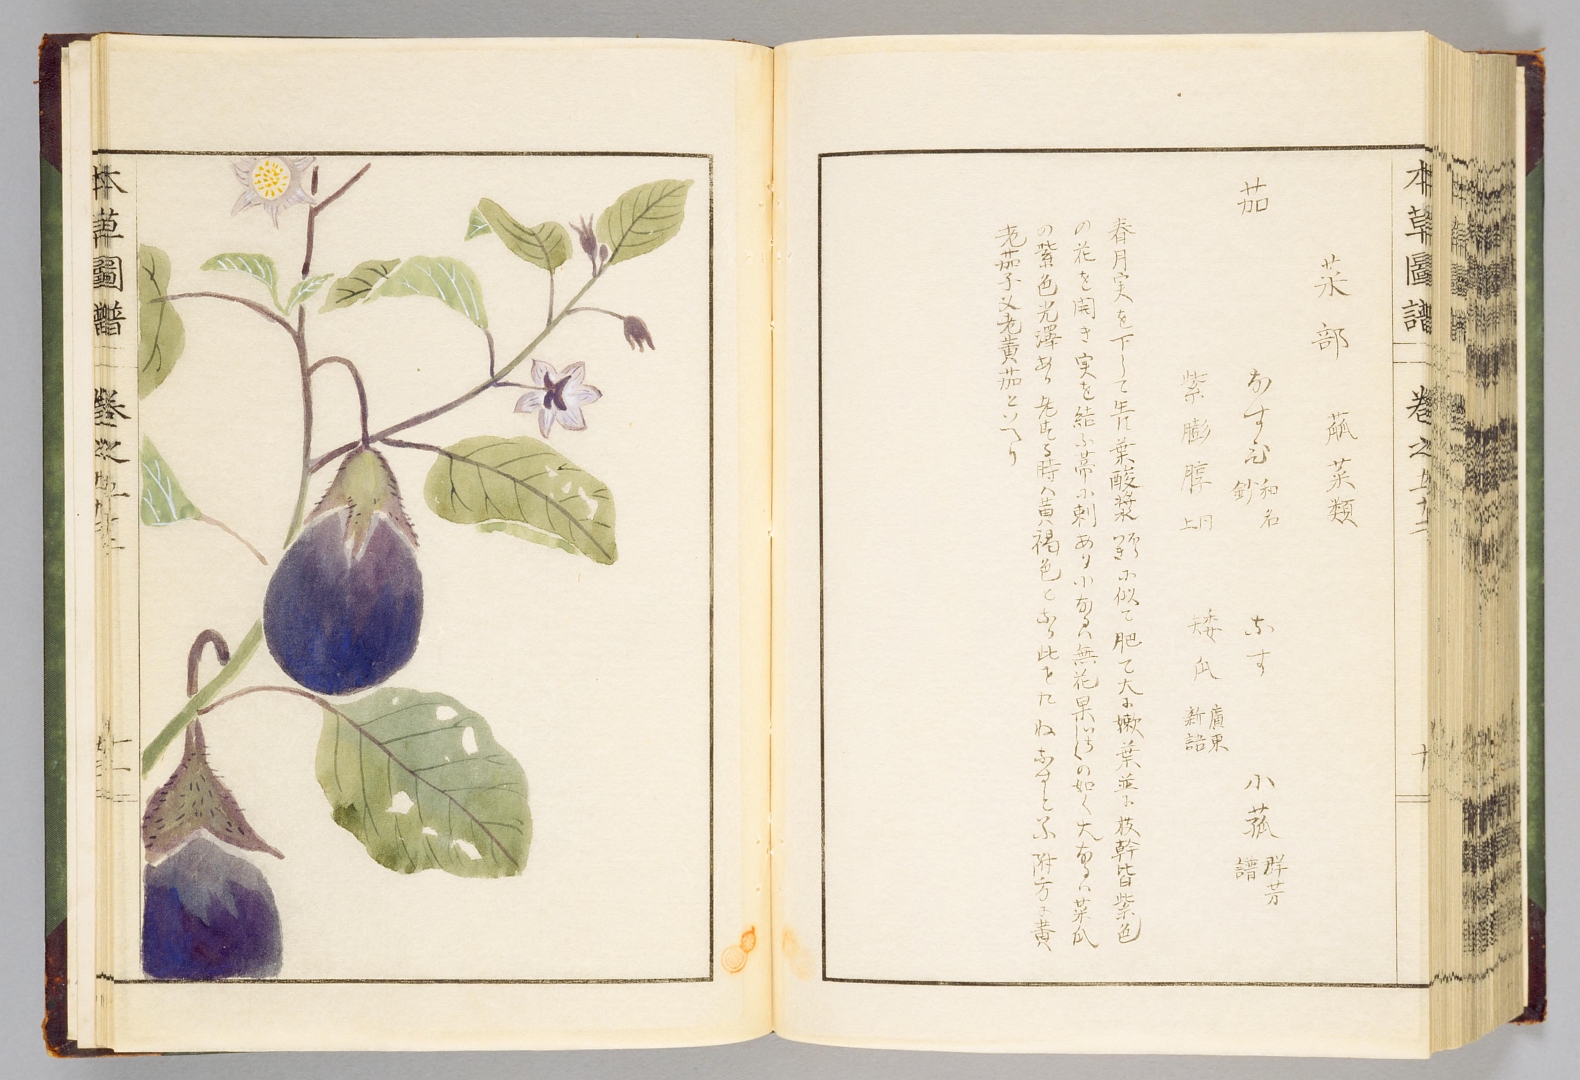 本草圖譜 巻之五十二
菜部 蓏菜類
茄 なすび 和名鈔 なす 小菰 群芳譜
紫膨脝 同上 矮瓜 廣東新語
春月実を下して生ず葉酸漿に似て肥て大に嫩葉並に枝幹皆紫色
の花を開き実を結ぶ蒂に刺あり小なるハ無花果の如く大なるハ菜瓜
の紫色光澤あり老する時ハ黄褐色となる此をたねなすと云附方に黄
老茄子又老黄茄といへり
本草圖譜